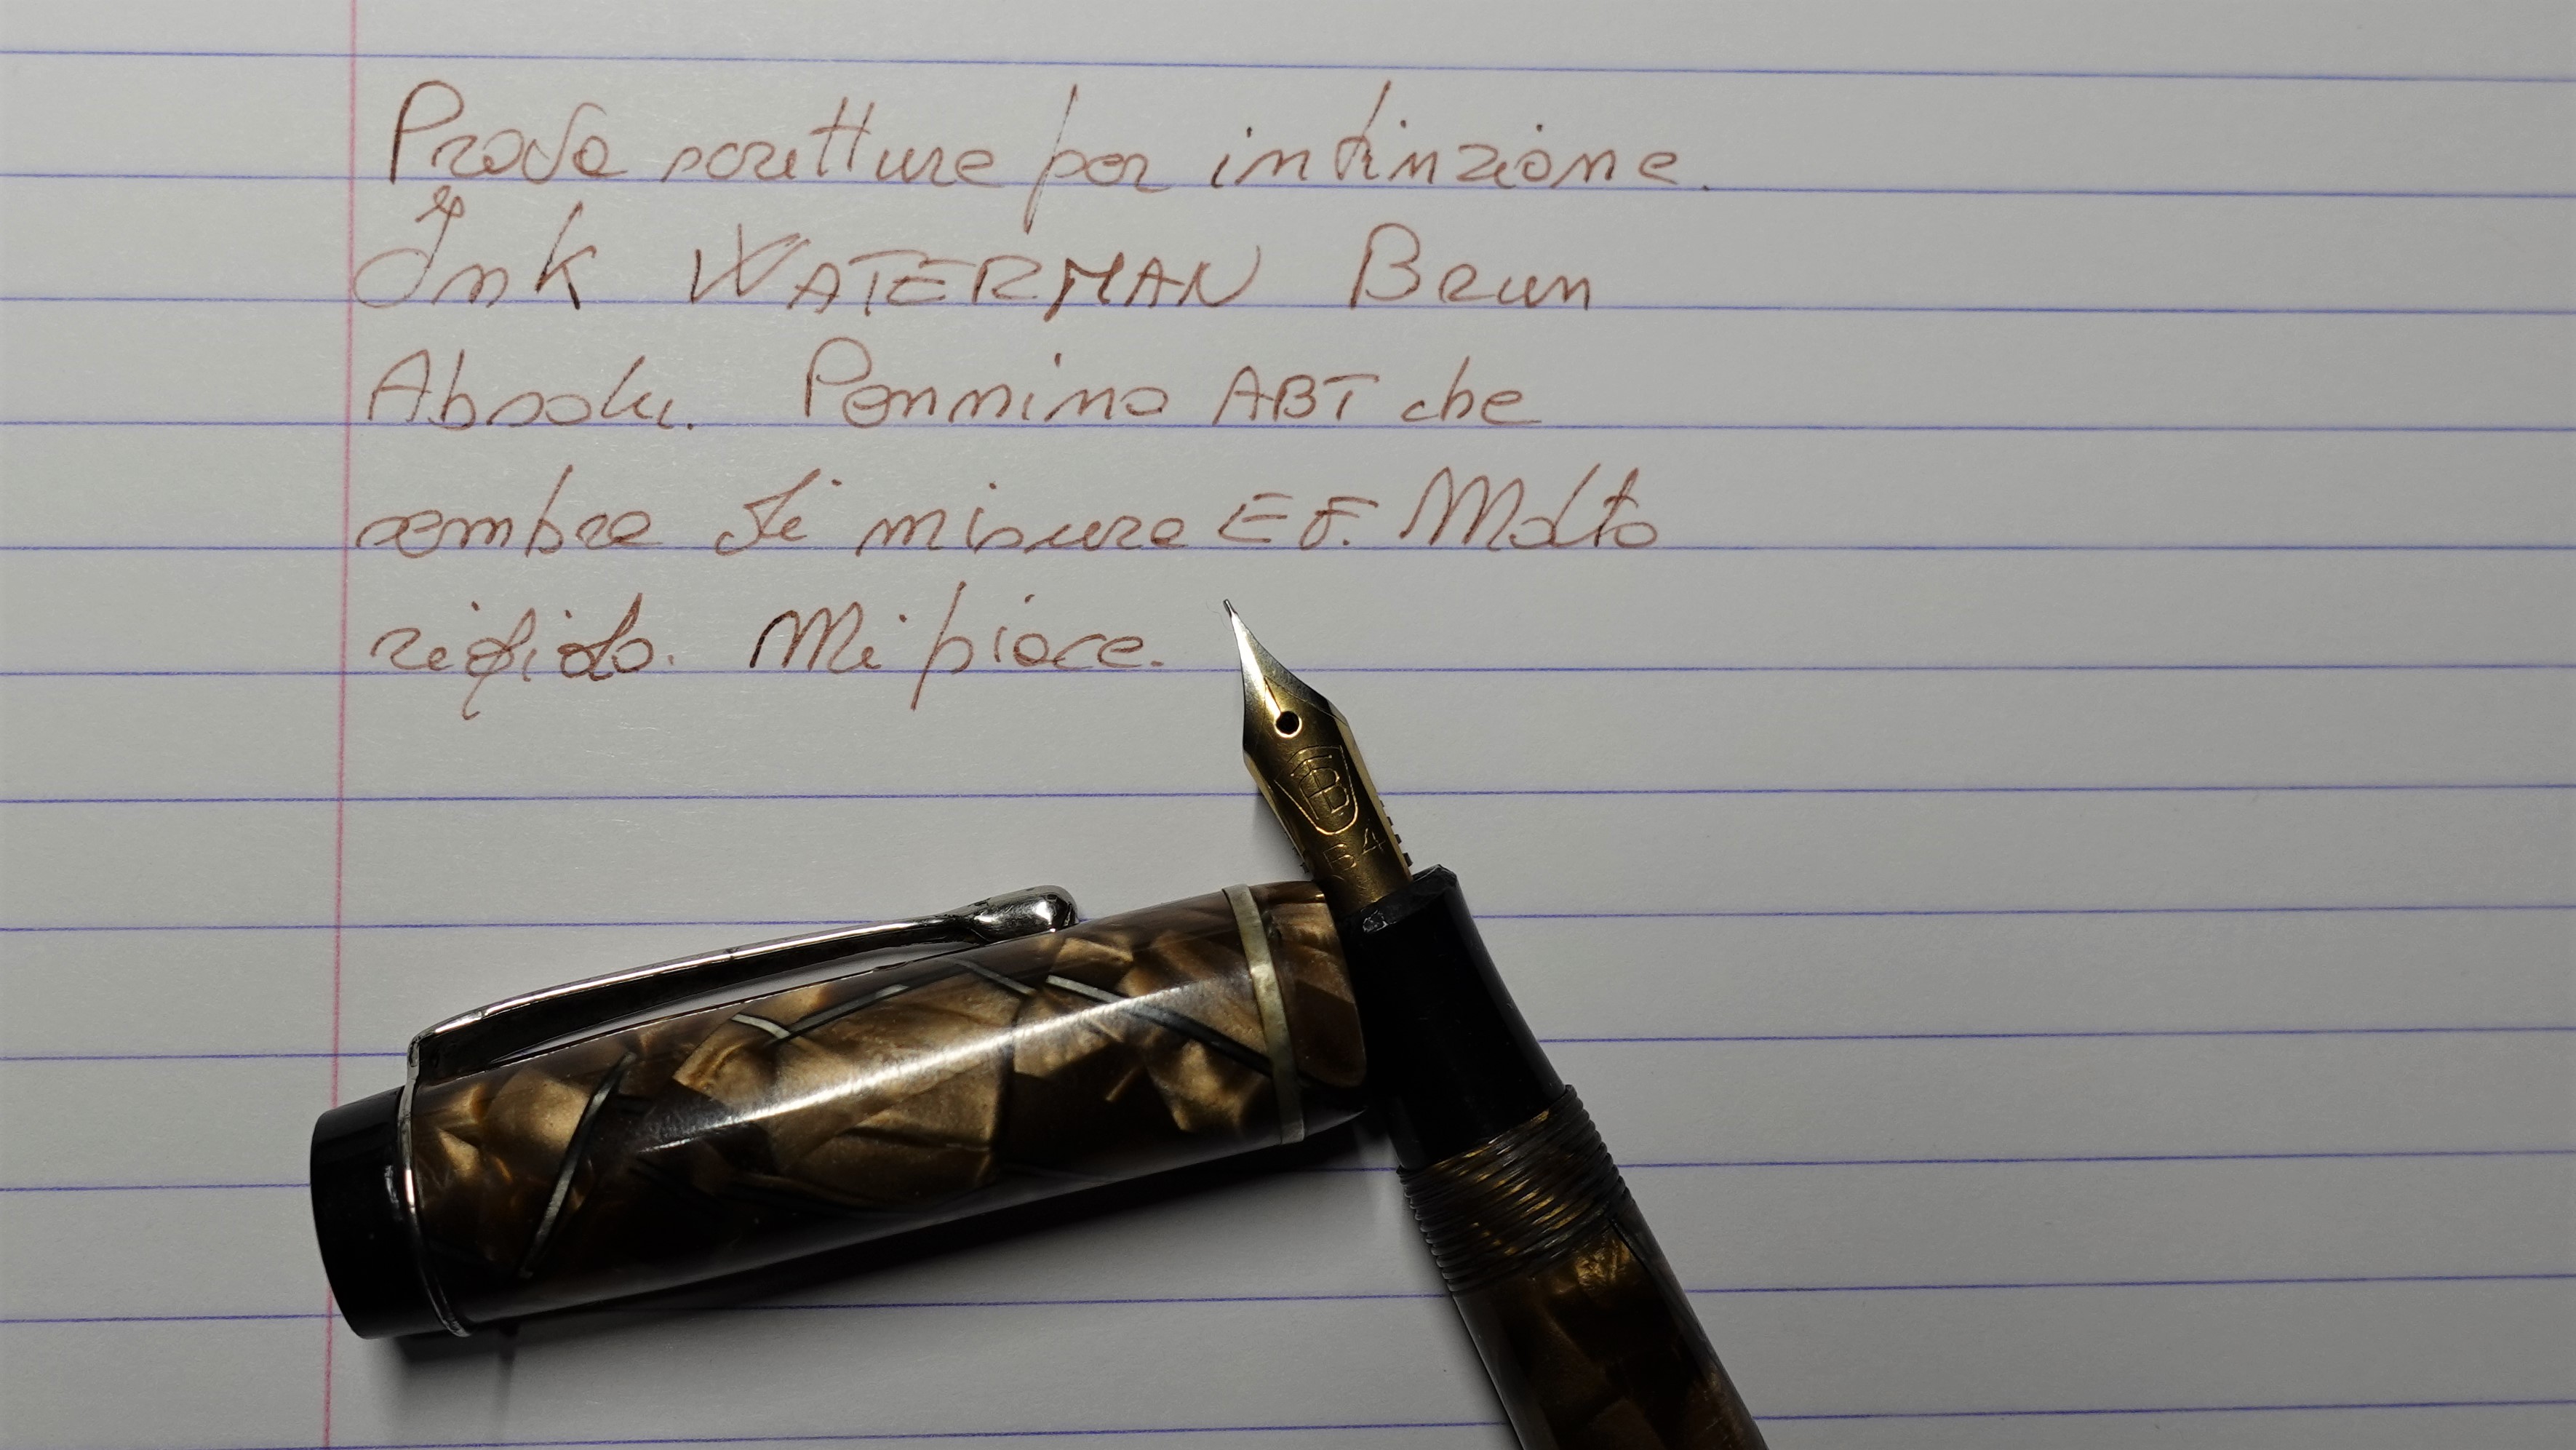 Prova scrittura per intinzione.
Ink WATERMAN Brun
Absolu. Pennino ABT che
sembra di misura EF. Molto
rigido. Mi piace.